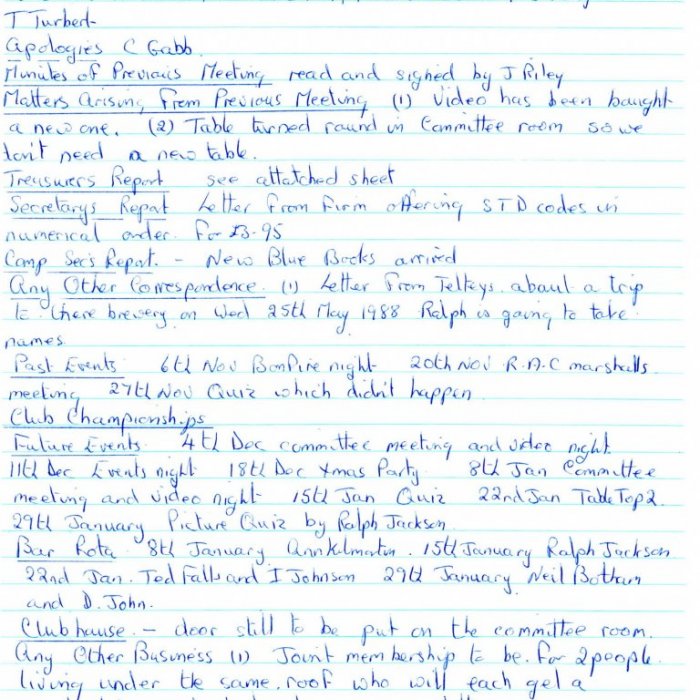 T Turbert
Apologies C Gabb.
Minutes of Previous Meeting read and signed by J Riley
Matters Arising From Previous Meeting (1) Video has been baught
a new one. (2) Table turned round in Committee room so we
don't need a new table.
Treasurers Report see attatched sheet
Secretarys Report Letter From Firm offering STD codes in
numerical order. For £3-95
Comp Sec's Report. - New Blue Books arrived
Any Other Correspondence. (1) Letter From Tetleys about a trip
to there brewery on Wed 25th May 1988 Ralph is going to take
names.
Past Events 6th Nov Bonfire night 20th Nov R.A.C marshalls
meeting 27th Nov Quiz which didn't happen
Club Championships
Future Events 4th Dec committee meeting and video night
11th Dec Events night 18th Dec Xmas Party 8th Jan Committee
meeting and video night 15th Jan Quiz 22nd Jan Table Top 2.
29th January Picture Quiz by Ralph Jackson.
Bar Rota 8th January Ann Kilmartin. 15th January Ralph Jackson
22nd Jan. Ted Falls and I Johnson 29th January Neil Botham
and D. John.
Clubhouse. - door still to be put on the committee room.
Any Other Business (1) Jount membership to be. For 2 people.
living under the same. roof who will each get a